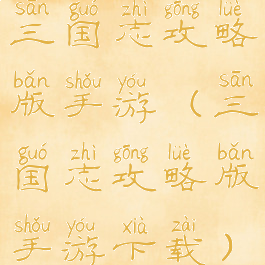 sān guó zhì gōng lüè
三国志攻略
bǎn shǒu yóu sān
版手游（三
guó zhì gōng lüè bǎn
国志攻略版
shǒu yóu xià zài
手游下载）